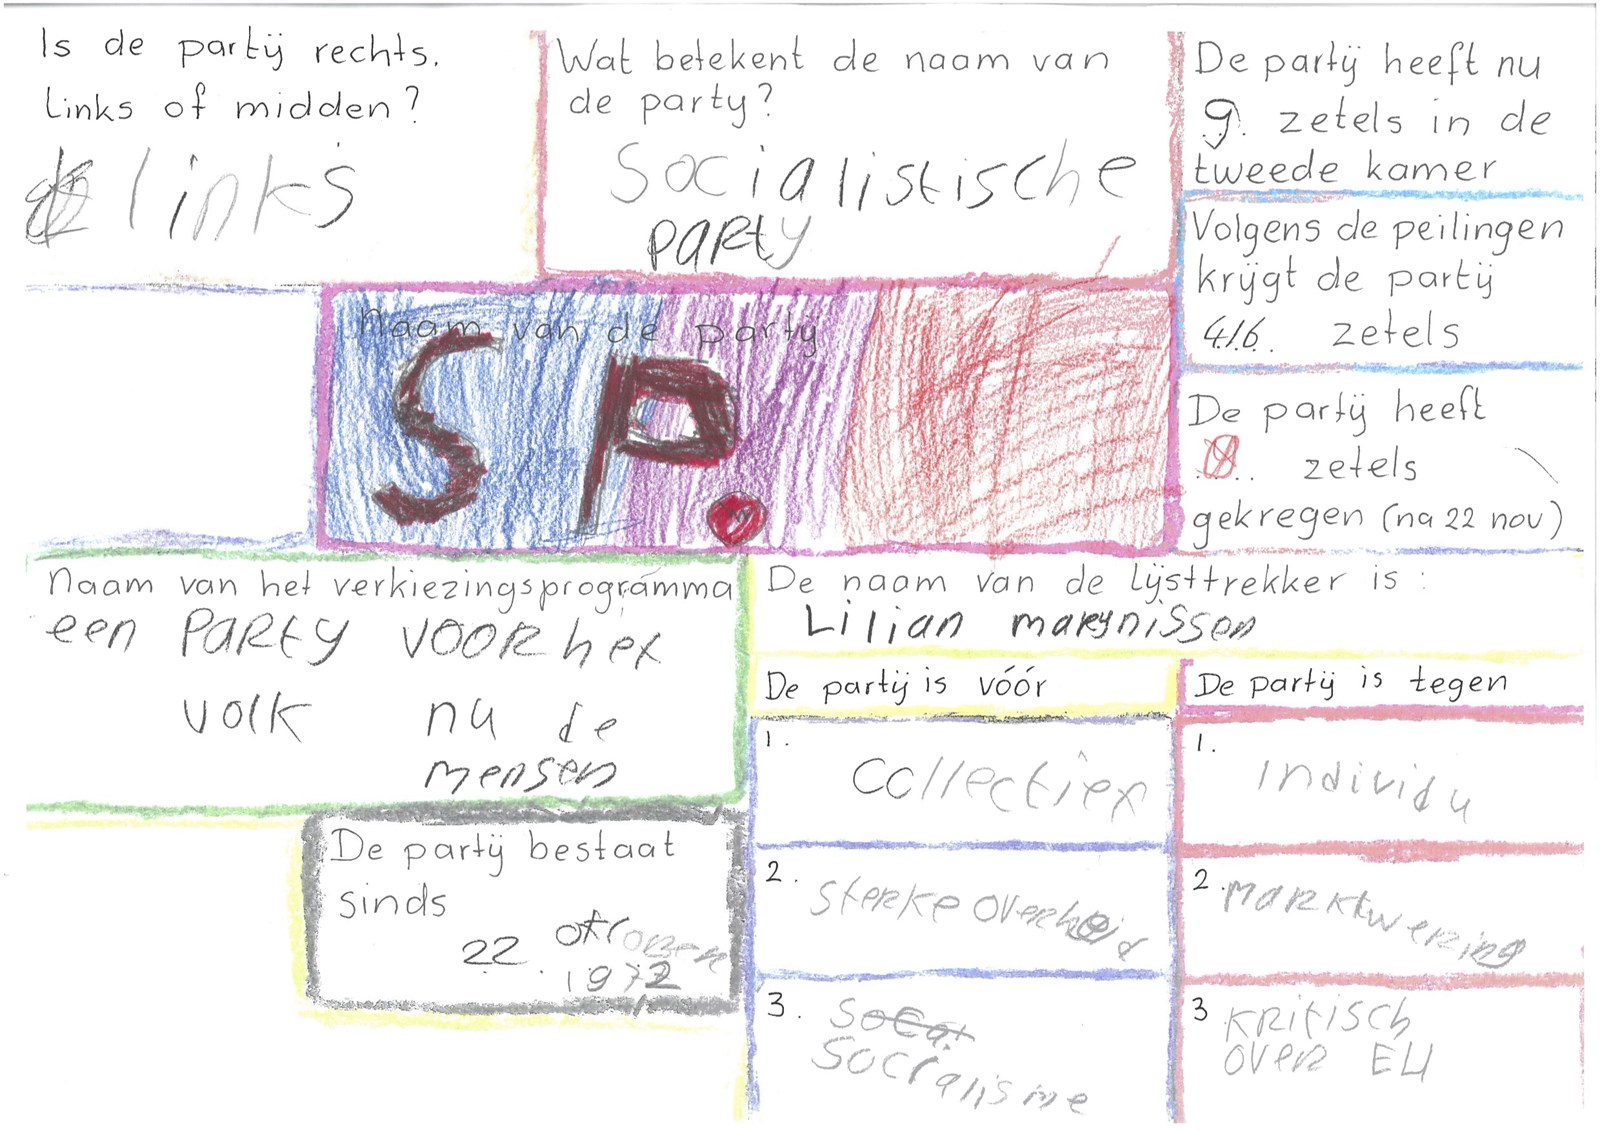 Is de partij rechts.
links of midden?
links
Wat betekent de naam van
de party?
Socialistische
party
De partij heeft nu
9. zetels in de
tweede kamer
Volgens de peilingen
krijgt de partij
4/6. zetels
De partij heeft
zetels
gekregen (na 22 nov)
Naam van de party
SP.
Naam van het verkiezingsprogramma
een party voor het
volk nu de
mensen
De naam van de lijsttrekker is:
Lilian marynissen
De partij is vóór
1. collectief
2. sterke overheid
3. socialisme
De partij is tegen
1. individu
2. marktwerzing
3 kritisch
over EU
De partij bestaat
sinds
22
1972